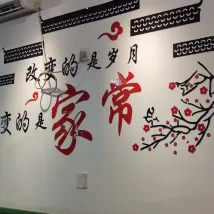 改变的是岁月
变的是家常